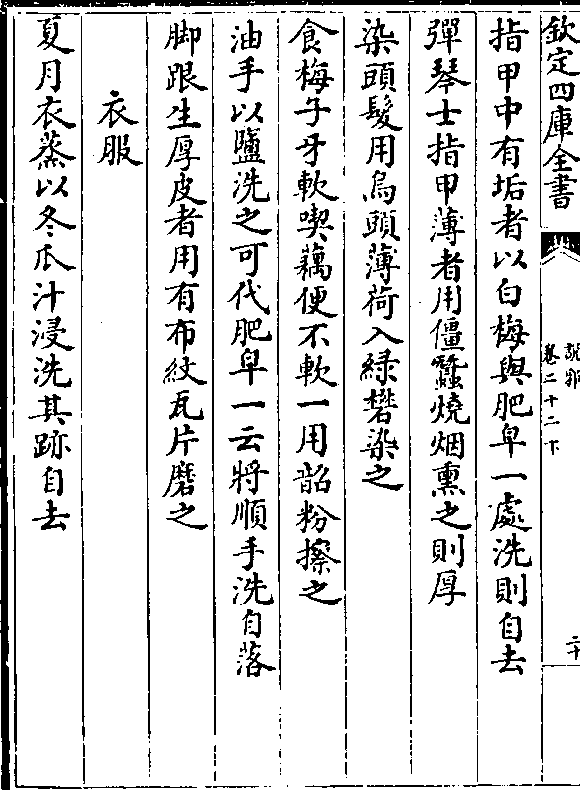 欽定四庫全書
說郛
卷二十二下
二十
指甲中有垢者以白梅與肥皁一處洗則自去
彈琴士指甲薄者用僵蠶燒烟熏之則厚
染頭髮用烏頭薄荷入緑礬染之
食梅子牙軟喫藕便不軟一用韶粉擦之
油手以鹽洗之可代肥皁一云將順手洗自落
脚跟生厚皮者用有布紋瓦片磨之
衣服
夏月衣蒸以冬瓜汁浸洗其跡自去